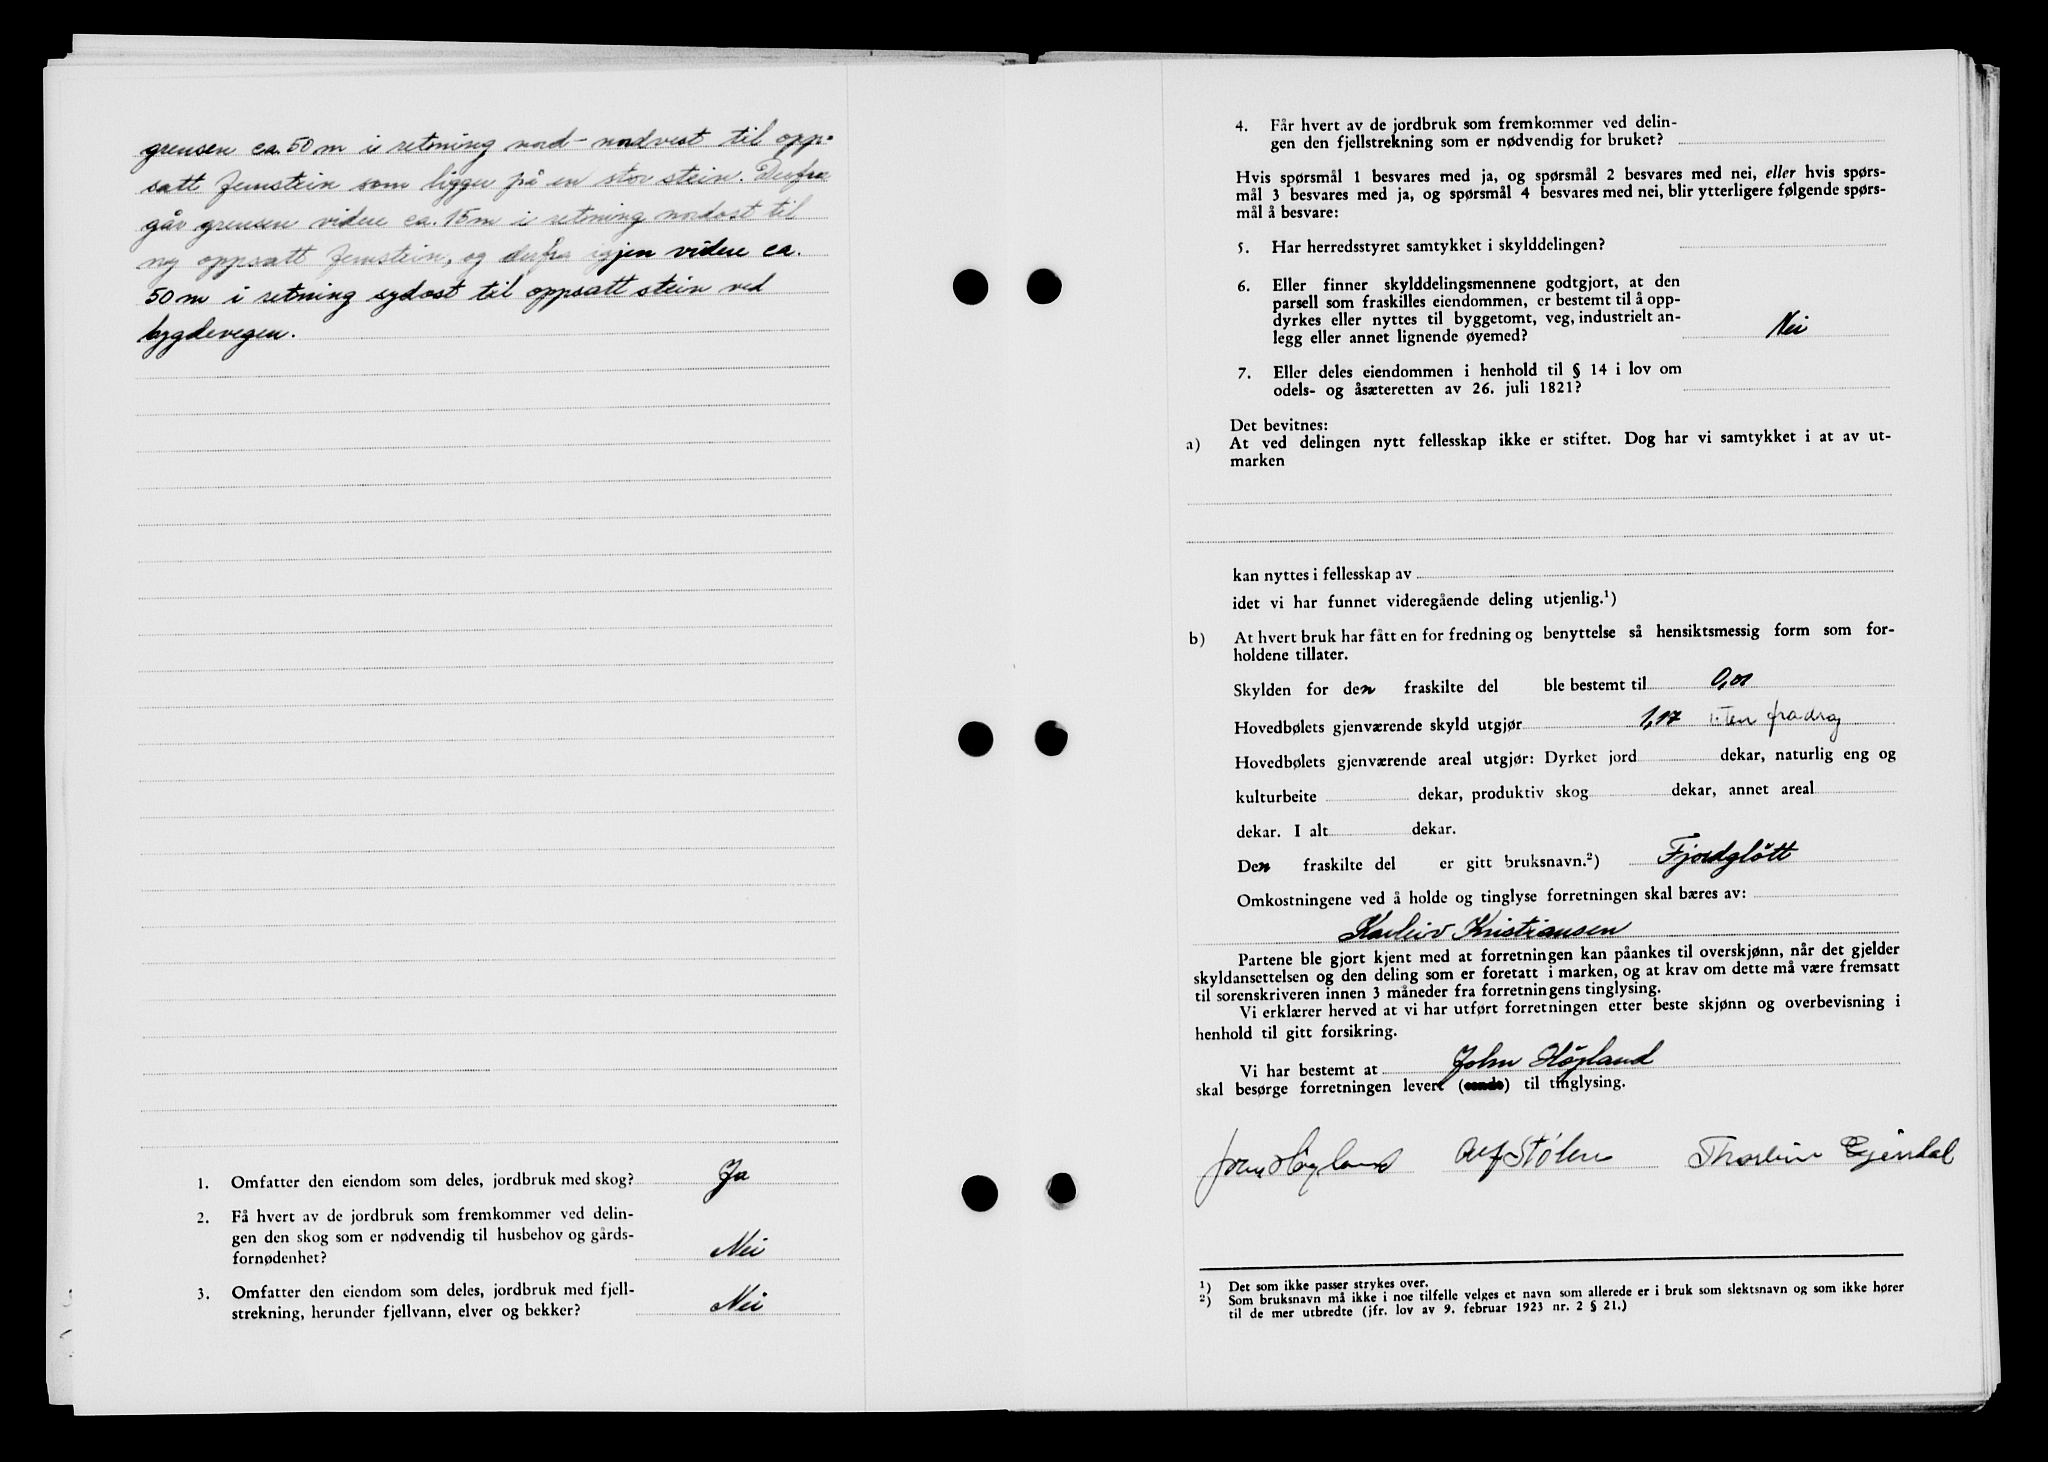 grensen ca. 50 m i retning nord-nordvest til opp-
satt jernstein som ligger på en stor stein. Derfra
går grensen videre ca. 15 m i retning nordost til
ny oppsatt jernstein, og derfra igjen videre ca.
50 m i retning sydost til oppsatt stein ved
bygdevegen.
1. Omfatter den eiendom som deles, jordbruk med skog? Ja
2. Få hvert av de jordbruk som fremkommer ved delin-
gen den skog som er nødvendig til husbehov og gårds-
fornødenhet? Nei
3. Omfatter den eiendom som deles, jordbruk med fjell-
strekning, herunder fjellvann, elver og bekker? Nei
4. Får hvert av de jordbruk som fremkommer ved delin-
gen den fjellstrekning som er nødvendig for bruket?
Hvis spørsmål 1 besvares med ja, og spørsmål 2 besvares med nei, eller hvis spørs-
mål 3 besvares med ja, og spørsmål 4 besvares med nei, blir ytterligere følgende spørs-
mål å besvare:
5. Har herredsstyret samtykket i skylddelingen?
6. Eller finner skylddelingsmennene godtgjort, at den
parsell som fraskilles eiendommen, er bestemt til å opp-
dyrkes eller nyttes til byggetomt, veg, industrielt an-
legg eller annet lignende øyemed? Nei
7. Eller deles eiendommen i henhold til § 14 i lov om
odels- og åsæteretten av 26. juli 1821?
Det bevitnes:
a) At ved delingen nytt fellesskap ikke er stiftet. Dog har vi samtykket i at av ut-
marken
kan nyttes i fellesskap av
idet vi har funnet videregående deling utjenlig.¹)
b) At hvert bruk har fått en for fredning og benyttelse så hensiktsmessig form som for-
holdene tillater.
Skylden for den fraskilte del ble bestemt til 0,01
Hovedbølets gjenværende skyld utgjør 1,17 uten fradrag
Hovedbølets gjenværende areal utgjør: Dyrket jord dekar, naturlig eng og
kulturbeite dekar, produktiv skog dekar, annet areal
dekar. I alt dekar.
Den fraskilte del er gitt bruksnavn.²) Fjordgløtt
Omkostningene ved å holde og tinglyse forretningen skal bæres av:
Karleiv Kristiansen
Partene ble gjort kjent med at forretningen kan påankes til overskjønn, når det gjelder
skyldansettelsen og den deling som er foretatt i marken, og at krav om dette må være fremsatt
til sorenskriveren innen 3 måneder fra forretningens tinglysing.
Vi erklærer herved at vi har utført forretningen etter beste skjønn og overbevisning i
henhold til gitt forsikring.
Vi har bestemt at John Høgland
skal besørge forretningen levert (sende) til tinglysing.
John Høgland Alf Stølen Thorleiv Gjerdal
¹) Det som ikke passer strykes over.
²) Som bruksnavn må ikke i noe tilfelle velges et navn som allerede er i bruk som slektsnavn og som ikke hører
til de mer utbredte (jfr. lov av 9. februar 1923 nr. 2 § 21.)